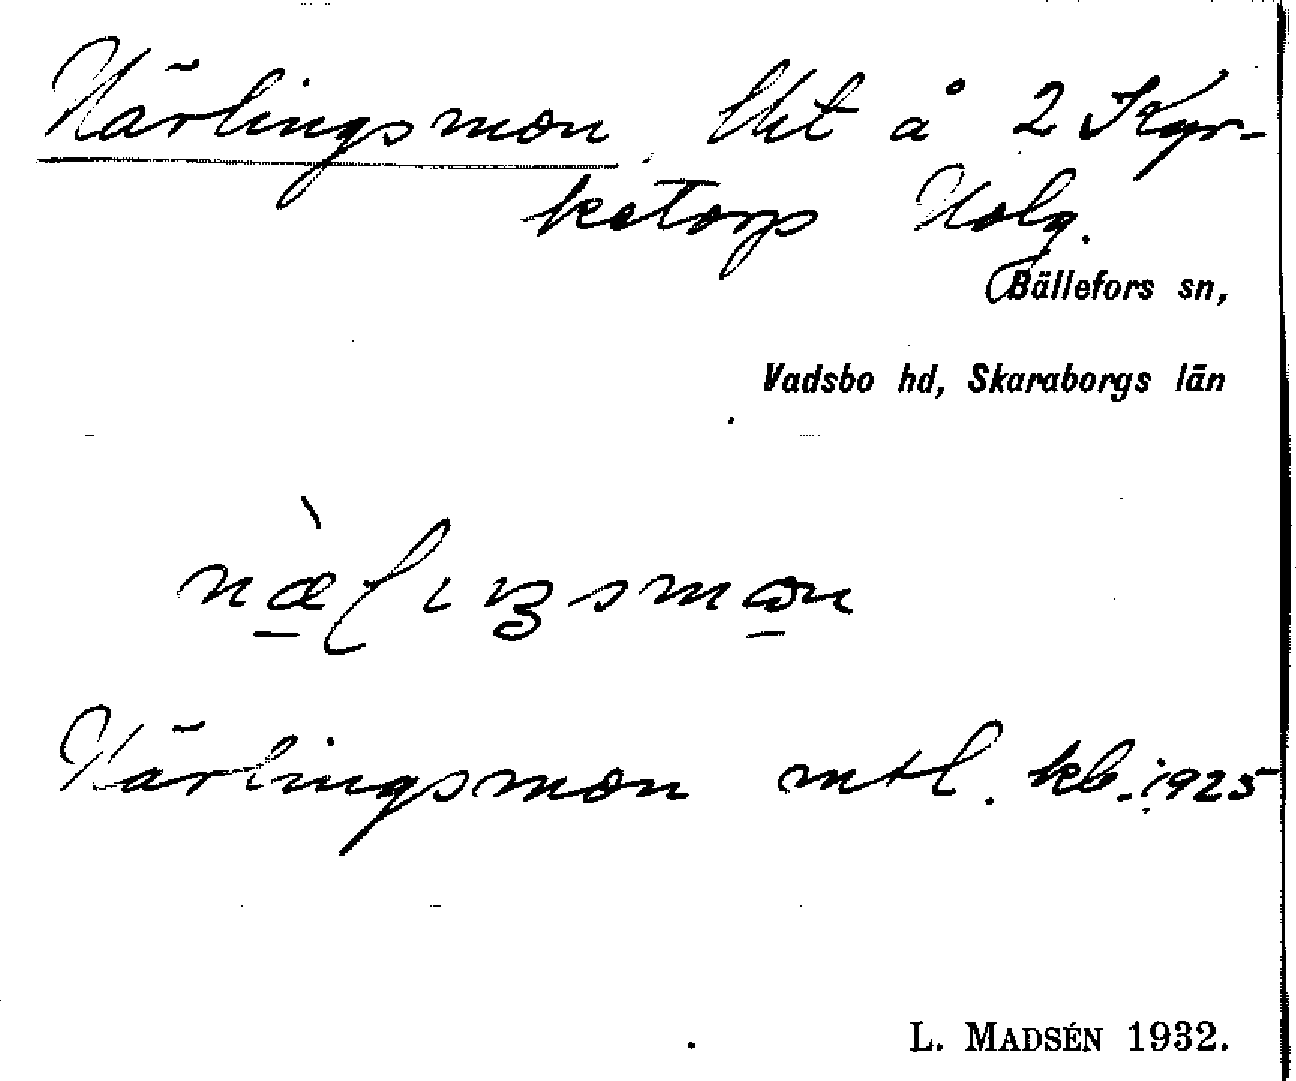 Närlingsmon lht å 2 Kyr-
ketorp Nolg.
Bällefors sn,
Vadsbo hd, Skaraborgs län
Närlingsmon mtl. kb. 1925
L. MADSÉN 1932.